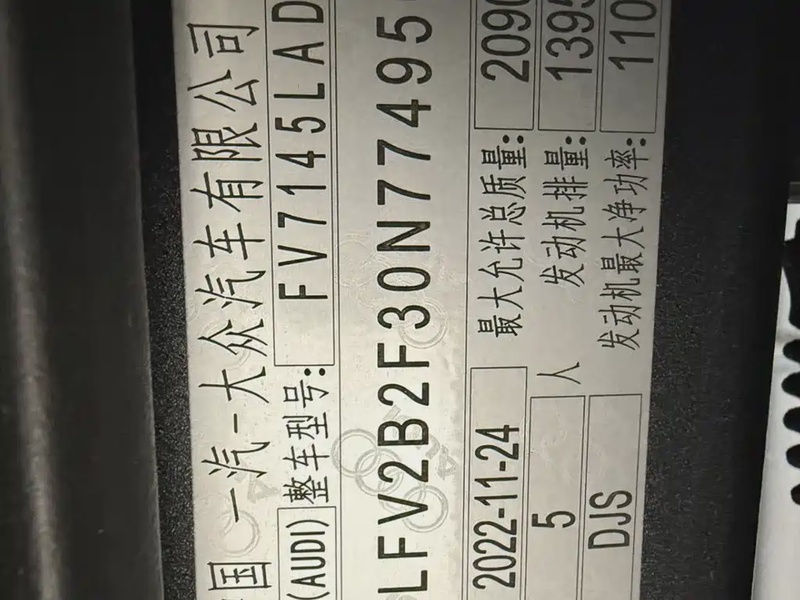 国一汽-大众汽车有限公司
(AUDI) 整车型号: FV7145LAD
LFV2B2F30N77495
2022-11-24 最大允许总质量: 2090
5 人 发动机排量: 1395
DJS 发动机最大净功率: 110